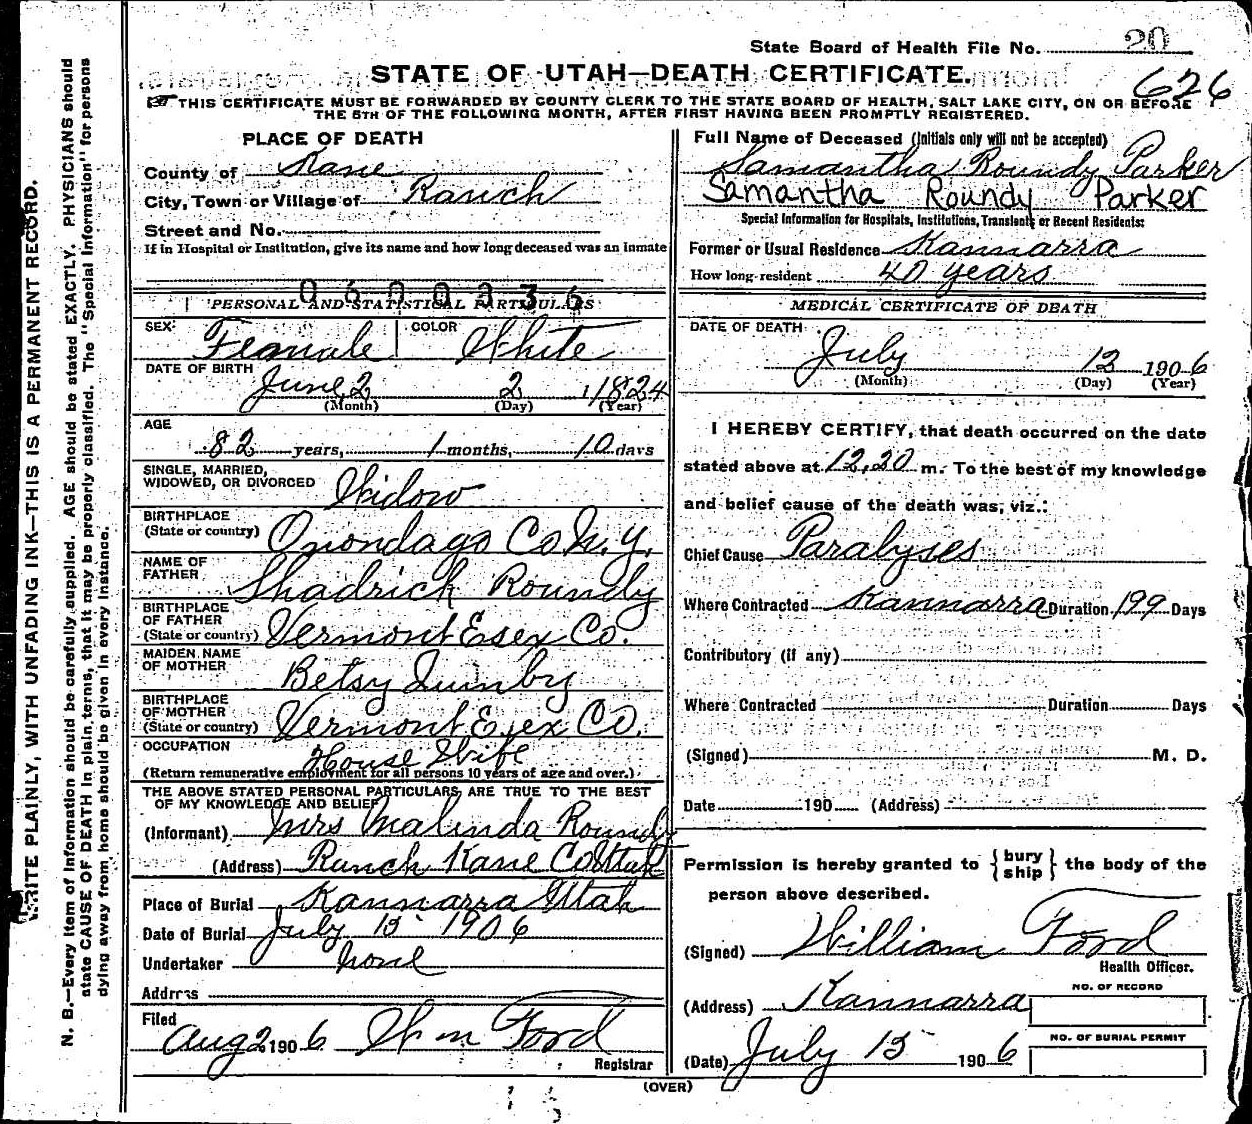 State Board of Health File No. 20
STATE OF UTAH—DEATH CERTIFICATE.
626
THIS CERTIFICATE MUST BE FORWARDED BY COUNTY CLERK TO THE STATE BOARD OF HEALTH, SALT LAKE CITY, ON OR BEFORE
THE 5TH OF THE FOLLOWING MONTH, AFTER FIRST HAVING BEEN PROMPTLY REGISTERED.
WRITE PLAINLY, WITH UNFADING INK—THIS IS A PERMANENT RECORD.
N. B.—Every item of information should be carefully supplied. AGE should be stated EXACTLY. PHYSICIANS should
state CAUSE OF DEATH in plain terms, that it may be properly classified. The "Special Information" for persons
dying away from home should be given in every instance.
PLACE OF DEATH
County of Kane
City, Town or Village of Ranch
Street and No.
If in Hospital or Institution, give its name and how long deceased was an inmate
PERSONAL AND STATISTICAL PARTICULARS
SEX: Female COLOR White
DATE OF BIRTH June 2 2 1824
(Month) (Day) (Year)
AGE
82 years, 1 months, 10 days
SINGLE, MARRIED,
WIDOWED, OR DIVORCED Widow
BIRTHPLACE
(State or country) Onondago Co N. Y.
NAME OF
FATHER Shadrick Roundy
BIRTHPLACE
OF FATHER
(State or country) Vermont Esex Co.
MAIDEN NAME
OF MOTHER Betsy Quimby
BIRTHPLACE
OF MOTHER
(State or country) Vermont Esex Co.
OCCUPATION House Wife
(Return remunerative employment for all persons 10 years of age and over.)
THE ABOVE STATED PERSONAL PARTICULARS ARE TRUE TO THE BEST
OF MY KNOWLEDGE AND BELIEF
(Informant) Mrs Malinda Roundy
(Address) Ranch Kane Co Utah
Place of Burial Kannarra Utah
Date of Burial July 15 1906
Undertaker none
Address
Filed
Aug 2 1906 Wm Ford
Registrar
Full Name of Deceased (Initials only will not be accepted)
Samantha Roundy Parker
Samantha Roundy Parker
Special Information for Hospitals, Institutions, Transients or Recent Residents:
Former or Usual Residence Kannarra
How long resident 40 years
MEDICAL CERTIFICATE OF DEATH
DATE OF DEATH
July 12 1906
(Month) (Day) (Year)
I HEREBY CERTIFY, that death occurred on the date
stated above at 12,20 m. To the best of my knowledge
and belief cause of the death was, viz.:
Chief Cause Paralyses
Where Contracted Kannarra Duration 199 Days
Contributory (if any)
Where Contracted Duration Days
(Signed) M. D.
Date 190 (Address)
Permission is hereby granted to { bury ship } the body of the
person above described.
(Signed) William Ford
Health Officer.
(Address) Kannarra
NO. OF RECORD
(Date) July 15 1906
NO. OF BURIAL PERMIT
(OVER)